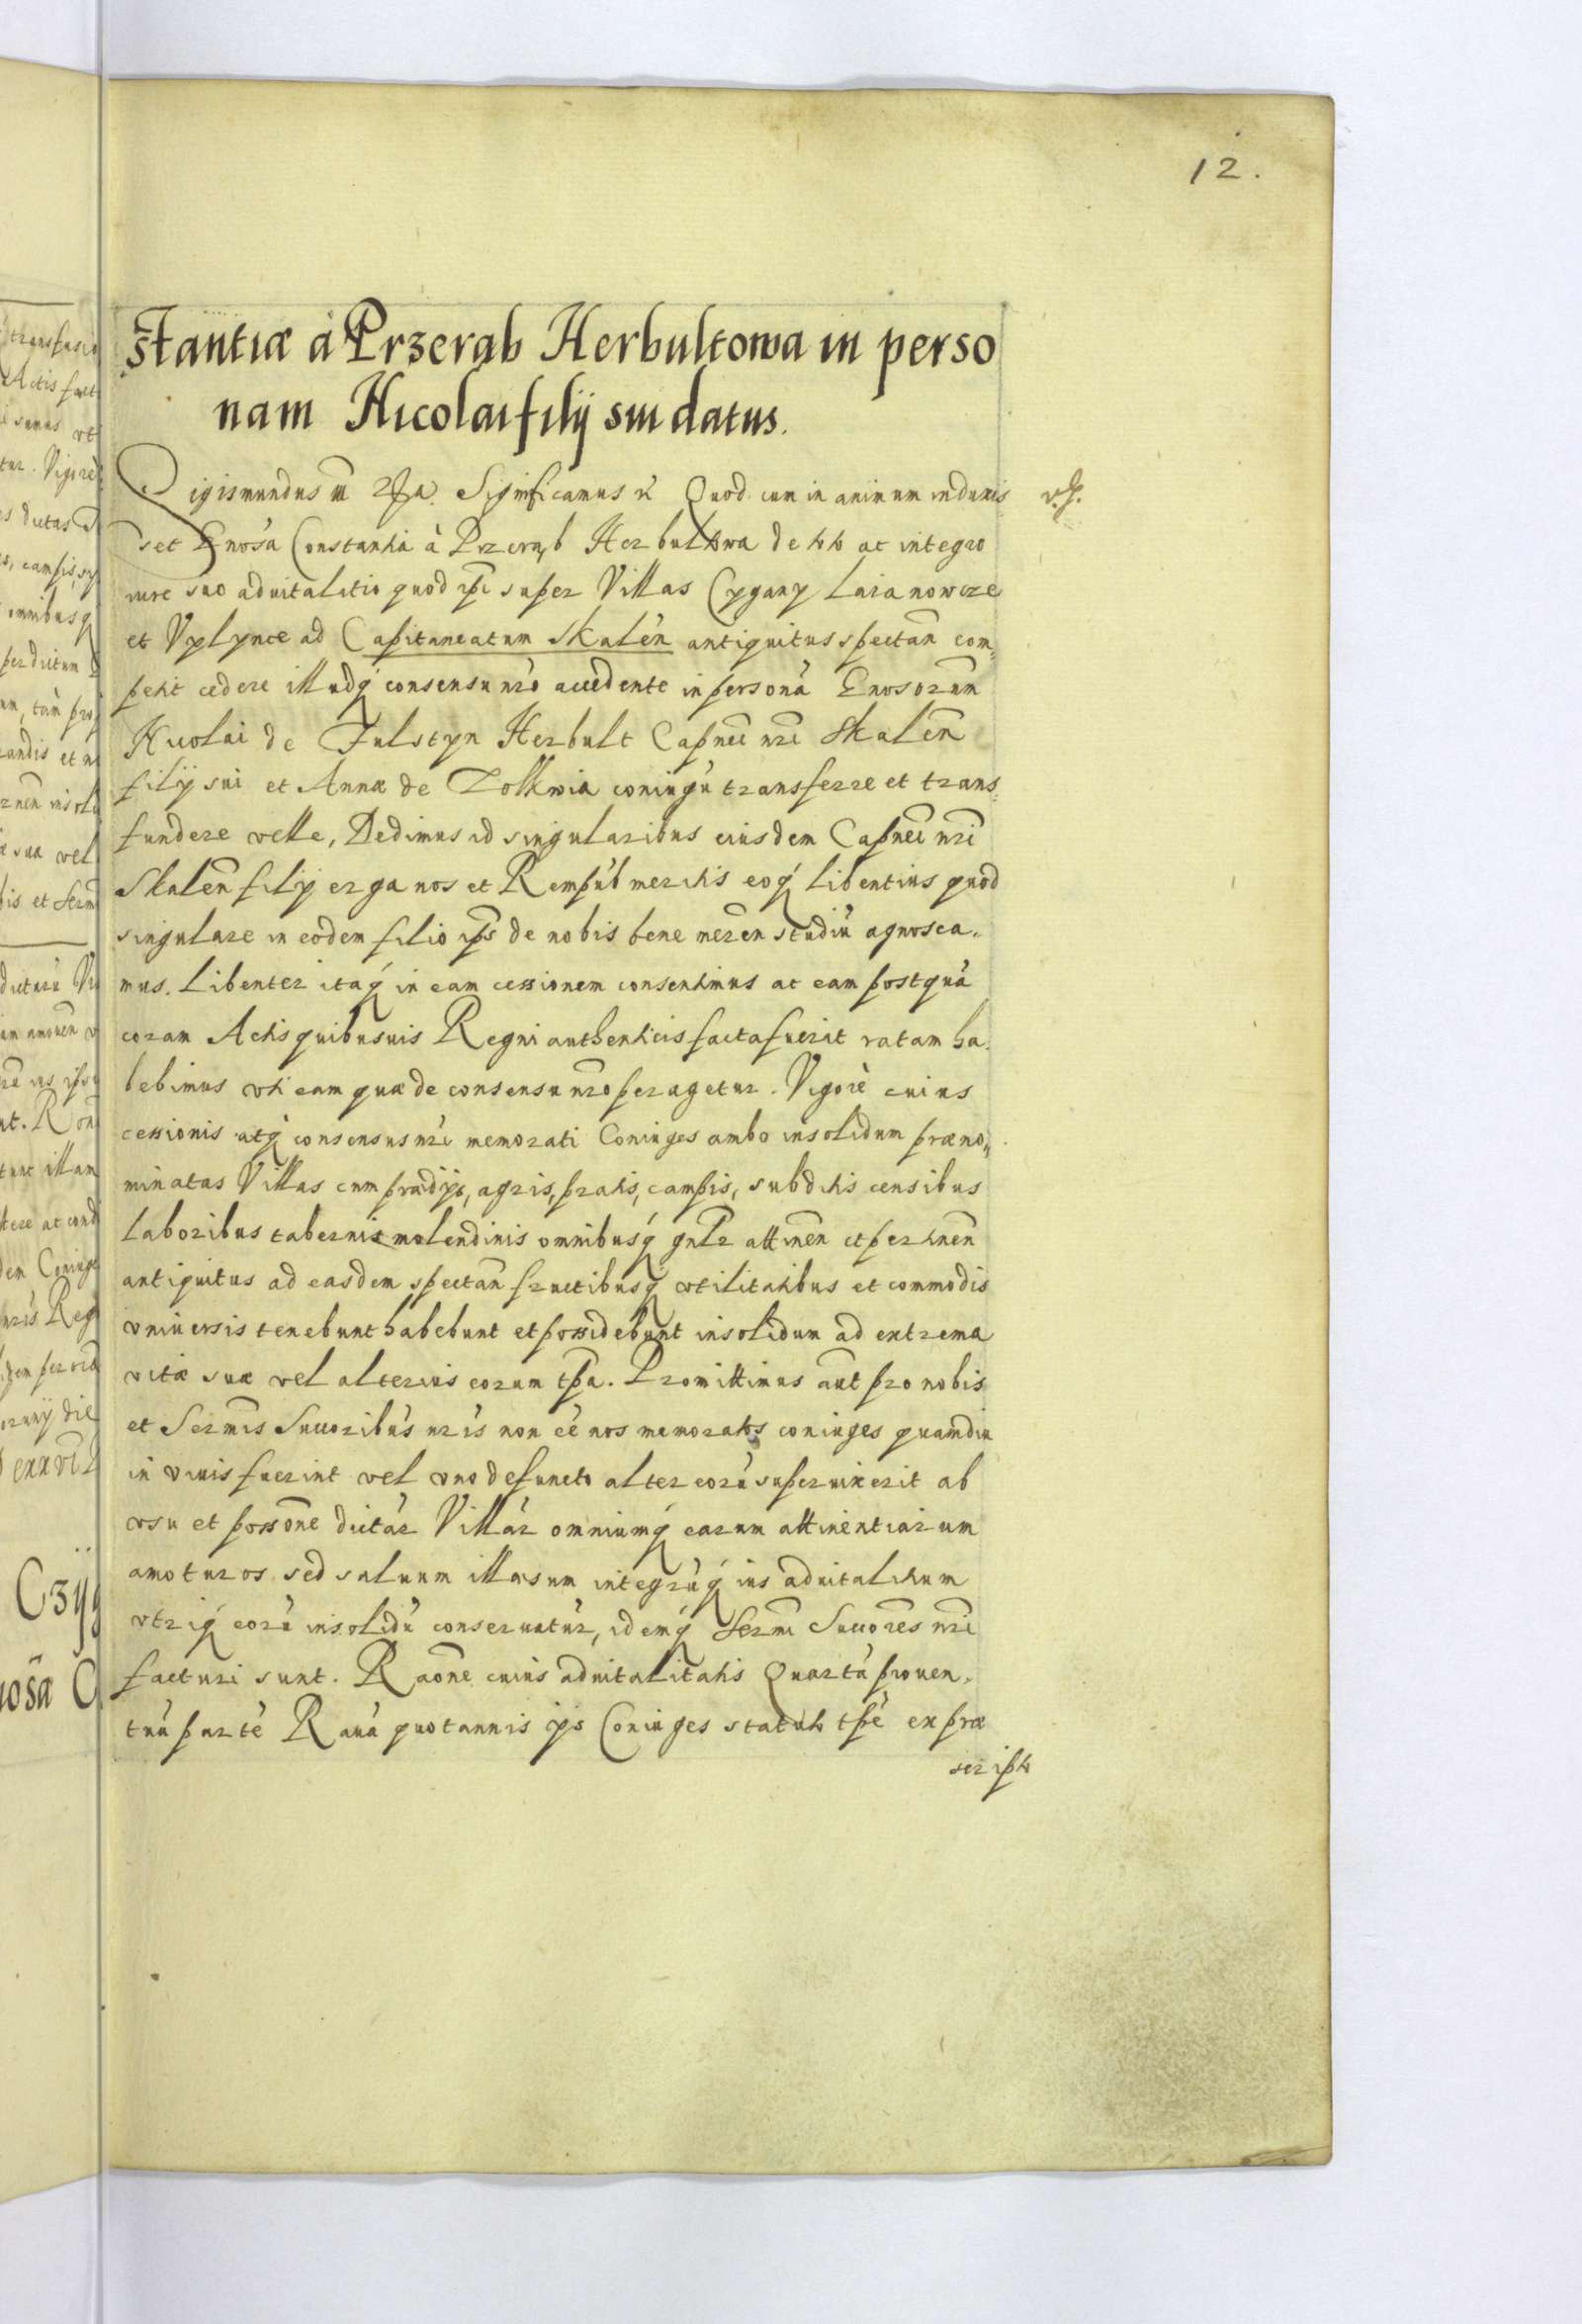 12.
stantiæ à Przerąb Herbultowa in perso
nam Nicolai filij sui datus.
Sigismundus III Rex Significamus &c Quod cum in animum induxis
set Gnosa Constantia à Przerąb Herbultowa de toto ac integro
iure suo aduitalitio quod ipsi super Villas Cygany Laianowcze
et Vylynce ad Capitaneatum Skalen̄ antiquitus spectan̄ com„
petit cedere illudq́ consensu nr̄o accedente in personā Gnosorum
Nicolai de Fulstyn Herbult Capnei nr̄i Skalen̄
filij sui et Annæ de Zolkwia coniugū transferre et trans„
fundere velle, Dedimus id singularibus eiusdem Capnei nr̄i
Skalen̄ filij erga nos et Rempúb meritis eoq́ libentius quod
singulare in eodem filio ips̄ de nobis bene meren̄ studiū agnosca„
mus. Libenter itaq́ in eam cessionem consentimus ac eam postquā
coram Actis quibusuis Regni authenticis facta fuerit ratam ha„
bebimus vti eam quæ de consensu nr̄o peragetur. Vigorè cuius
cessionis atq́ consensus nr̄i memorati Coniuges ambo insolidum præno„
minatas Villas cum prædijs, agris, pratis, campis, subditis censibus
laboribus tabernis molendinis omnibusq́ gnlr attinen̄ et pertinen̄
antiquitus ad easdem spectan̄ fructibusq́ vtilitatibus et commodis
vniuersis tenebunt habebunt et possidebunt insolidum ad extrema
vitæ suæ vel alterius eorum tp̄a. Promittimus aūt pro nobis
et Sermis Succoribús nr̄is non eē nos memoratos coniuges quamdiu
in viuis fuerint vel vno defuncto alter eorū superuixerit ab
vsu et posson̄e dictár Villár omniumq́ earum attinentiarum
amoturos sed saluum illæsum integrūq́ ius aduitalitium
vtriq́ eorū insolidū conseruatúr, idemq́ Sermi Succores nr̄i
facturi sunt. Raon̄e cuius aduitalitatis Quartā prouen„
tuū partē Rauā quotannis ijs Coniuges statuto tp̄e ex præ
scripto